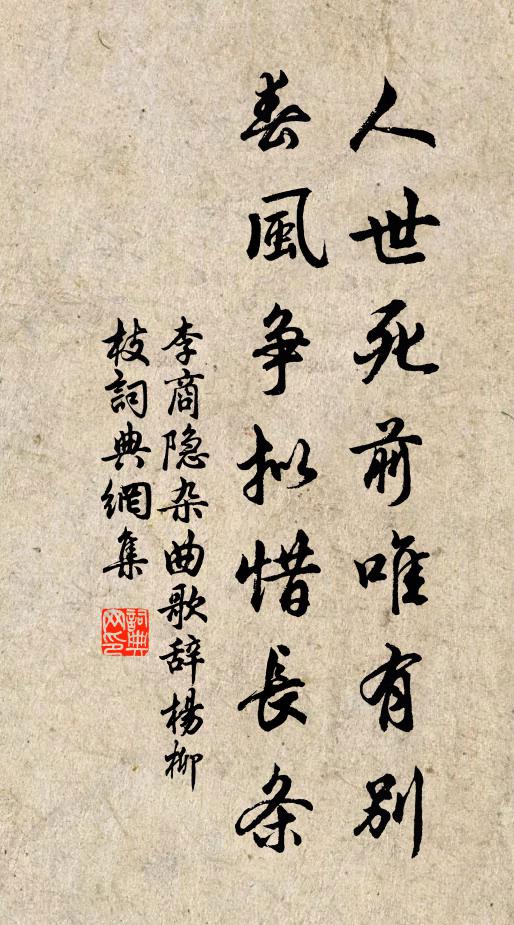 人世死前唯有别
春風争拟惜長条
李商隐杂曲歌辞楊柳
枝詞典網集
詞典网印